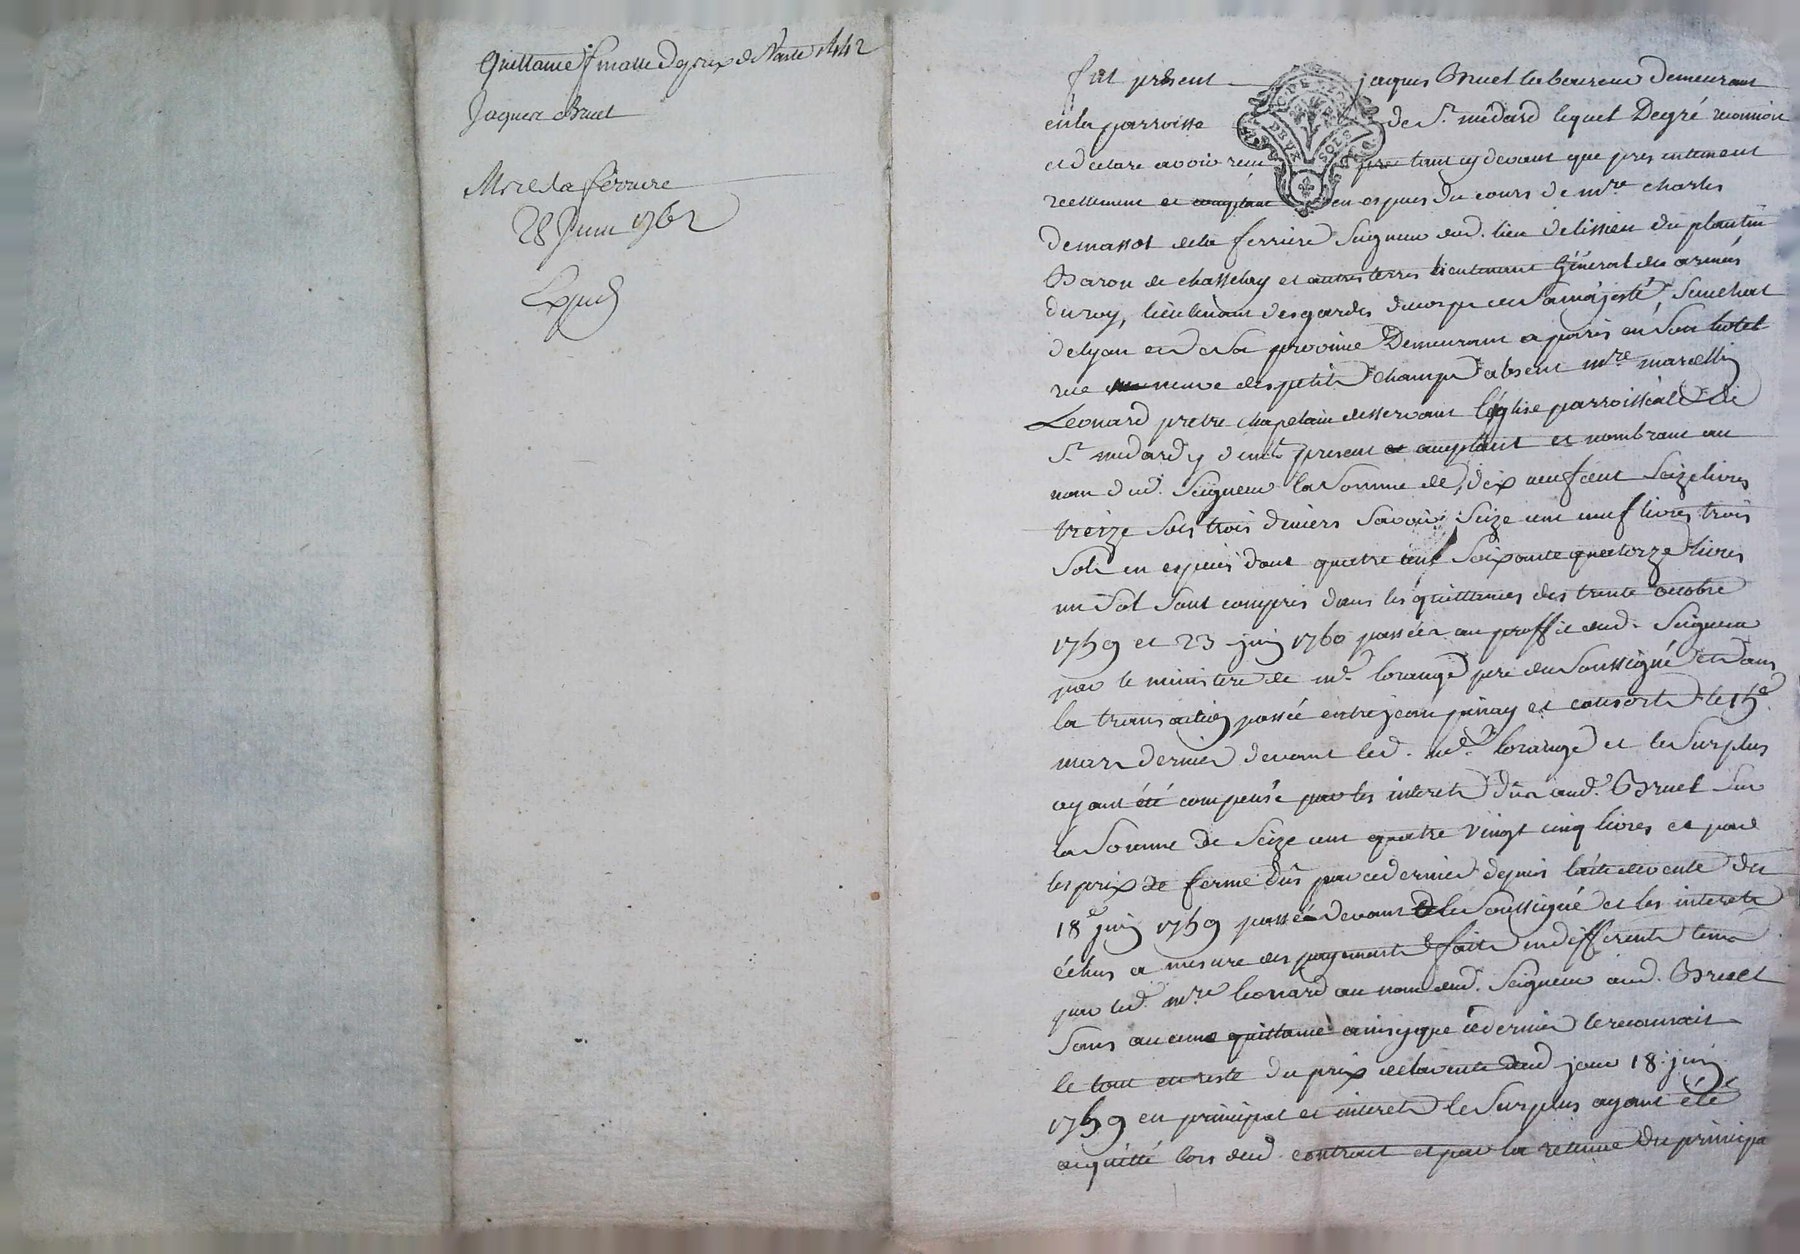 Quittance finalle de prix de Vante
Jaques Bruet
Mre de la ferriere
28 Juin 1762
Expédié
fut présent jaques Bruet laboureur demeurant
en la parroisse de St. médard lequel De gré reconnoi
et declare avoir recu tant cy devant que presentement
reellement et comptant en especes du cours de mre charles
demassot de la ferriere Seigneur dud. lieu delissieu du plantin
Baron de chasselay et autres terres lieutenant Général des armées
du roy, lieutenant des gardes du corps de Sa majesté, Senechal
de lyon et de Sa province Demeurant a paris en Son hotel
rue neuve des petits champs absent mre marcellin
Leonard pretre chapelain desservant l'église parroissiale de
St. medard y dem.t present et comptant et nombrant au
nom dud. Seigneur la Somme de dix neuf cent Seize livres
treize Sols trois deniers Savoir Seize cent neuf livres trois
Sols en especes dont quatre cent Soixante quatorze livres
un Sol Sont compris dans les quittances des trente octobre
1759 et 23 juin 1760 passées au proffit dud. Seigneur
par le ministere de me. lorange pere du Soussigné et dans
la transaction passée entre jean pinay et consorts le 15e.
mars dernier devant led. me. lorange et le Surplus
ayant été compensé par les interets dus aud. Bruet Sur
la Somme de Seize cent quatre vingt cinq livres et par
les prix de ferme dus par ce dernier depuis lacte de vente du
18e juin 1759 passée devant le Soussigné et les interets
échus a mesure des payements faits en differents tems
par led. mre leonard au nom dud. Seigneur aud. Bruet
Sans aucune quittance ainsy que ce dernier le reconnait
le tout en reste du prix de la vente dud jour 18 juin
1759 en principal et interets le Surplus ayant été
acquitté lors dud. contract et par la retenue du principa